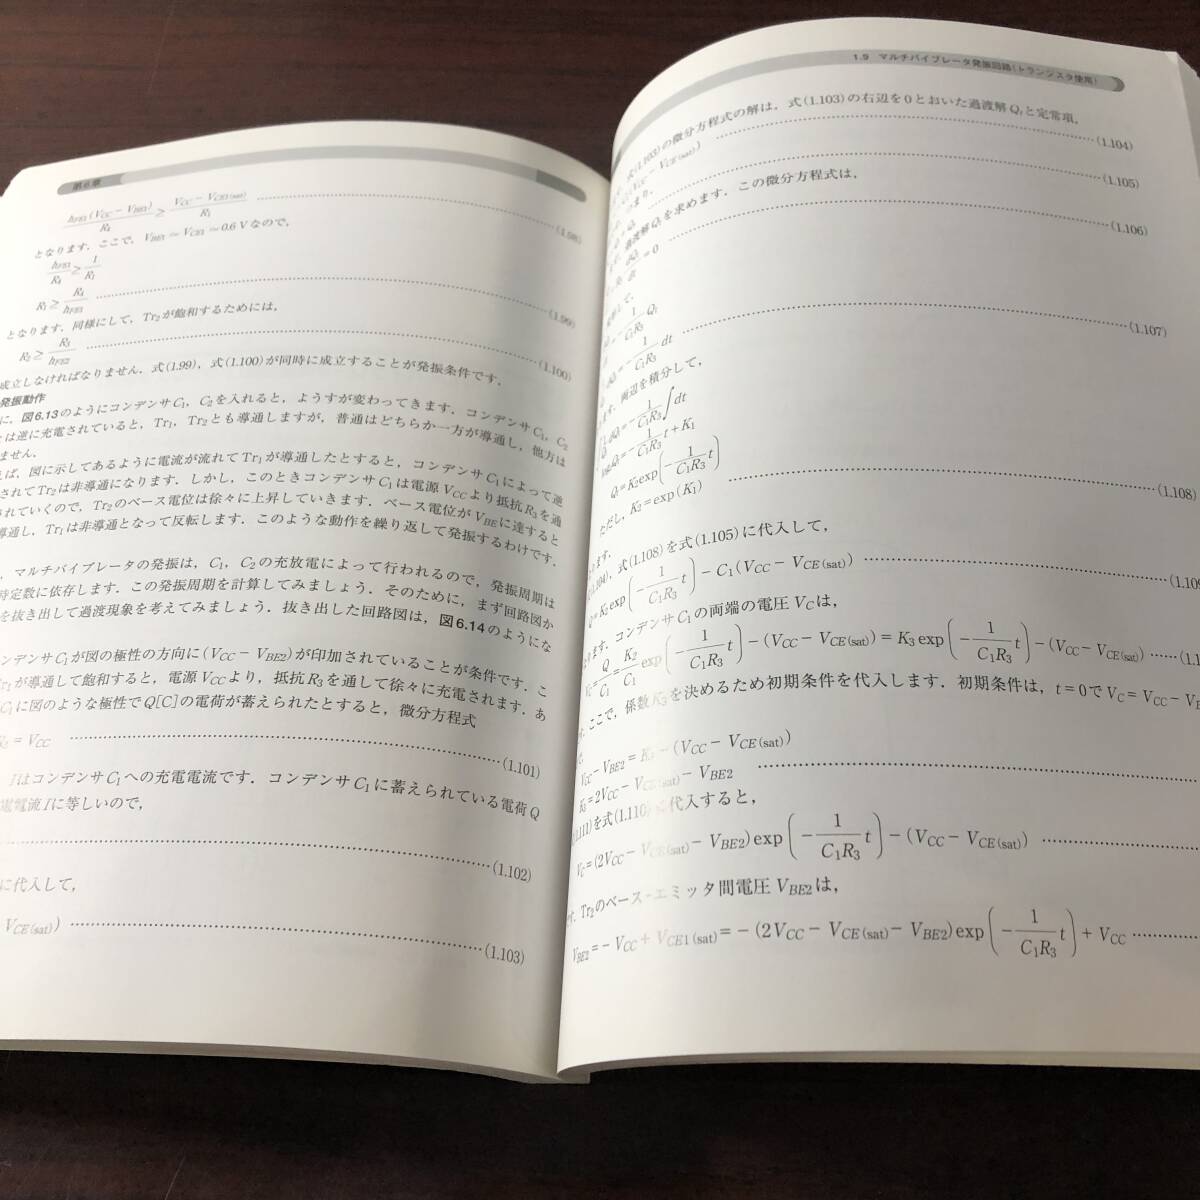 第6章
hFE1(VCC − VBE1)/R4 ≥ (VCC − VCE1(sat))/R1 ……(1.98)
となります．ここで，VBE1 ～ VCE1 ～ 0.6 V なので，
hFE1/R4 ≥ 1/R1
R1 ≥ R4/hFE1 ……(1.99)
となります．同様にして，Tr2が飽和するためには，
R2 ≥ R3/hFE2 ……(1.100)
成立しなければなりません．式(1.99)，式(1.100)が同時に成立することが発振条件です．
発振動作
に，図6.13のようにコンデンサC1，C2を入れると，ようすが変わってきます．コンデンサC1，C2
とは逆に充電されていると，Tr1，Tr2とも導通しますが，普通はどちらか一方が導通し，他方は
ません．
えば，図に示してあるように電流が流れてTr1が導通したとすると，コンデンサC1によって逆
されてTr2は非導通になります．しかし，このときコンデンサC1は電源VCCより抵抗R3を通
されていくので，Tr2のベース電位は徐々に上昇していきます．ベース電位がVBEに達すると
導通し，Tr1は非導通となって反転します．このような動作を繰り返して発振するわけです．
，マルチバイブレータの発振は，C1，C2の充放電によって行われるので，発振周期は
時定数に依存します．この発振周期を計算してみましょう．そのために，まず回路図か
を抜き出して過渡現象を考えてみましょう．抜き出した回路図は，図6.14のようにな
ンデンサC1が図の極性の方向に(VCC − VBE2)が印加されていることが条件です．こ
Tr1が導通して飽和すると，電源VCCより，抵抗R3を通して徐々に充電されます．あ
C1に図のような極性でQ[C]の電荷が蓄えられたとすると，微分方程式
= VCC ……(1.101)
IはコンデンサC1への充電電流です．コンデンサC1に蓄えられている電荷Q
電電流Iに等しいので，
……(1.102)
に代入して，
VCE(sat)) ……(1.103)
1.9 マルチバイブレータ発振回路(トランジスタ使用)
式(1.103)の微分方程式の解は，式(1.103)の右辺を0とおいた過渡解Qtと定常項，
(VCC − VCE(sat)) ……(1.104)
つまり，
……(1.105)
過渡解Qtを求めます．この微分方程式は，
= 0 ……(1.106)
変形して，
= − 1/(C1R3) Qt
= − 1/(C1R3) dt ……(1.107)
ます．両辺を積分して，
dQt = − 1/(C1R3) ∫dt
= − 1/(C1R3) t + K1
Qt = K2 exp(− 1/(C1R3) t) ……(1.108)
ただし，K2 = exp(K1)
ます．
(1.104)，式(1.108)を式(1.105)に代入して，
Q = K2 exp(− 1/(C1R3) t) − C1(VCC − VCE(sat)) ……(1.109
ます．コンデンサC1の両端の電圧VCは，
VC = Q/C1 = K2/C1 exp(− 1/(C1R3) t) − (VCC − VCE(sat)) = K3 exp(− 1/(C1R3) t) − (VCC − VCE(sat)) ……(1.1
す．ここで，係数K3を決めるため初期条件を代入します．初期条件は，t = 0でVC = VCC − VB
で，
VCC − VBE2 = K3 − (VCC − VCE(sat))
K3 = 2VCC − VCE(sat) − VBE2 ……
(1.111)を式(1.110)に代入すると，
VC = (2VCC − VCE(sat) − VBE2) exp(− 1/(C1R3) t) − (VCC − VCE(sat)) ……
す．Tr2のベース-エミッタ間電圧VBE2は，
VBE2 = − VCC + VCE1(sat) = − (2VCC − VCE(sat) − VBE2) exp(− 1/(C1R3) t) + VCC ……